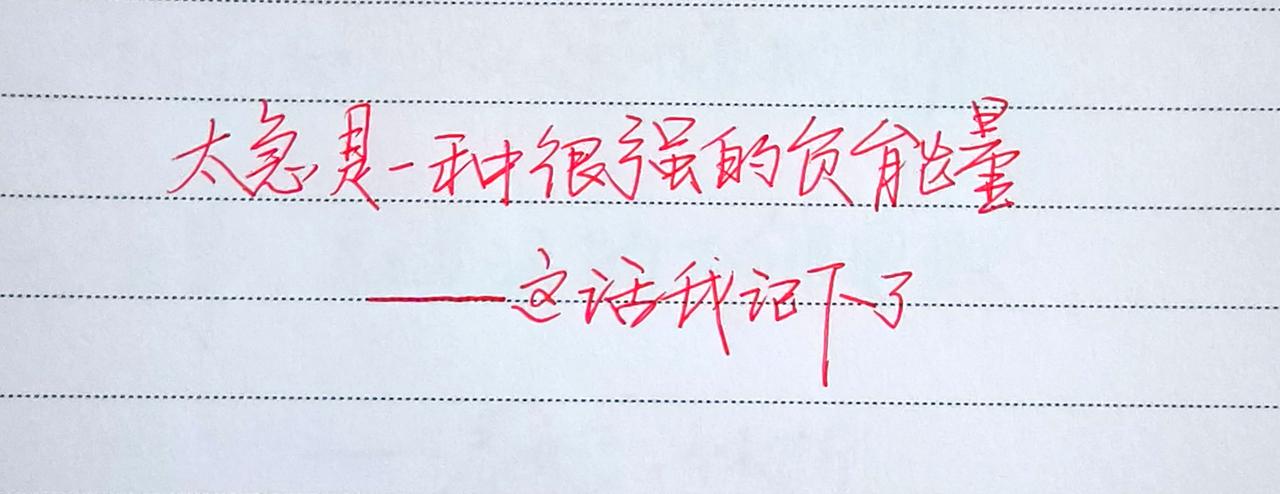 太急是一种很强的负能量
——这话我记下了